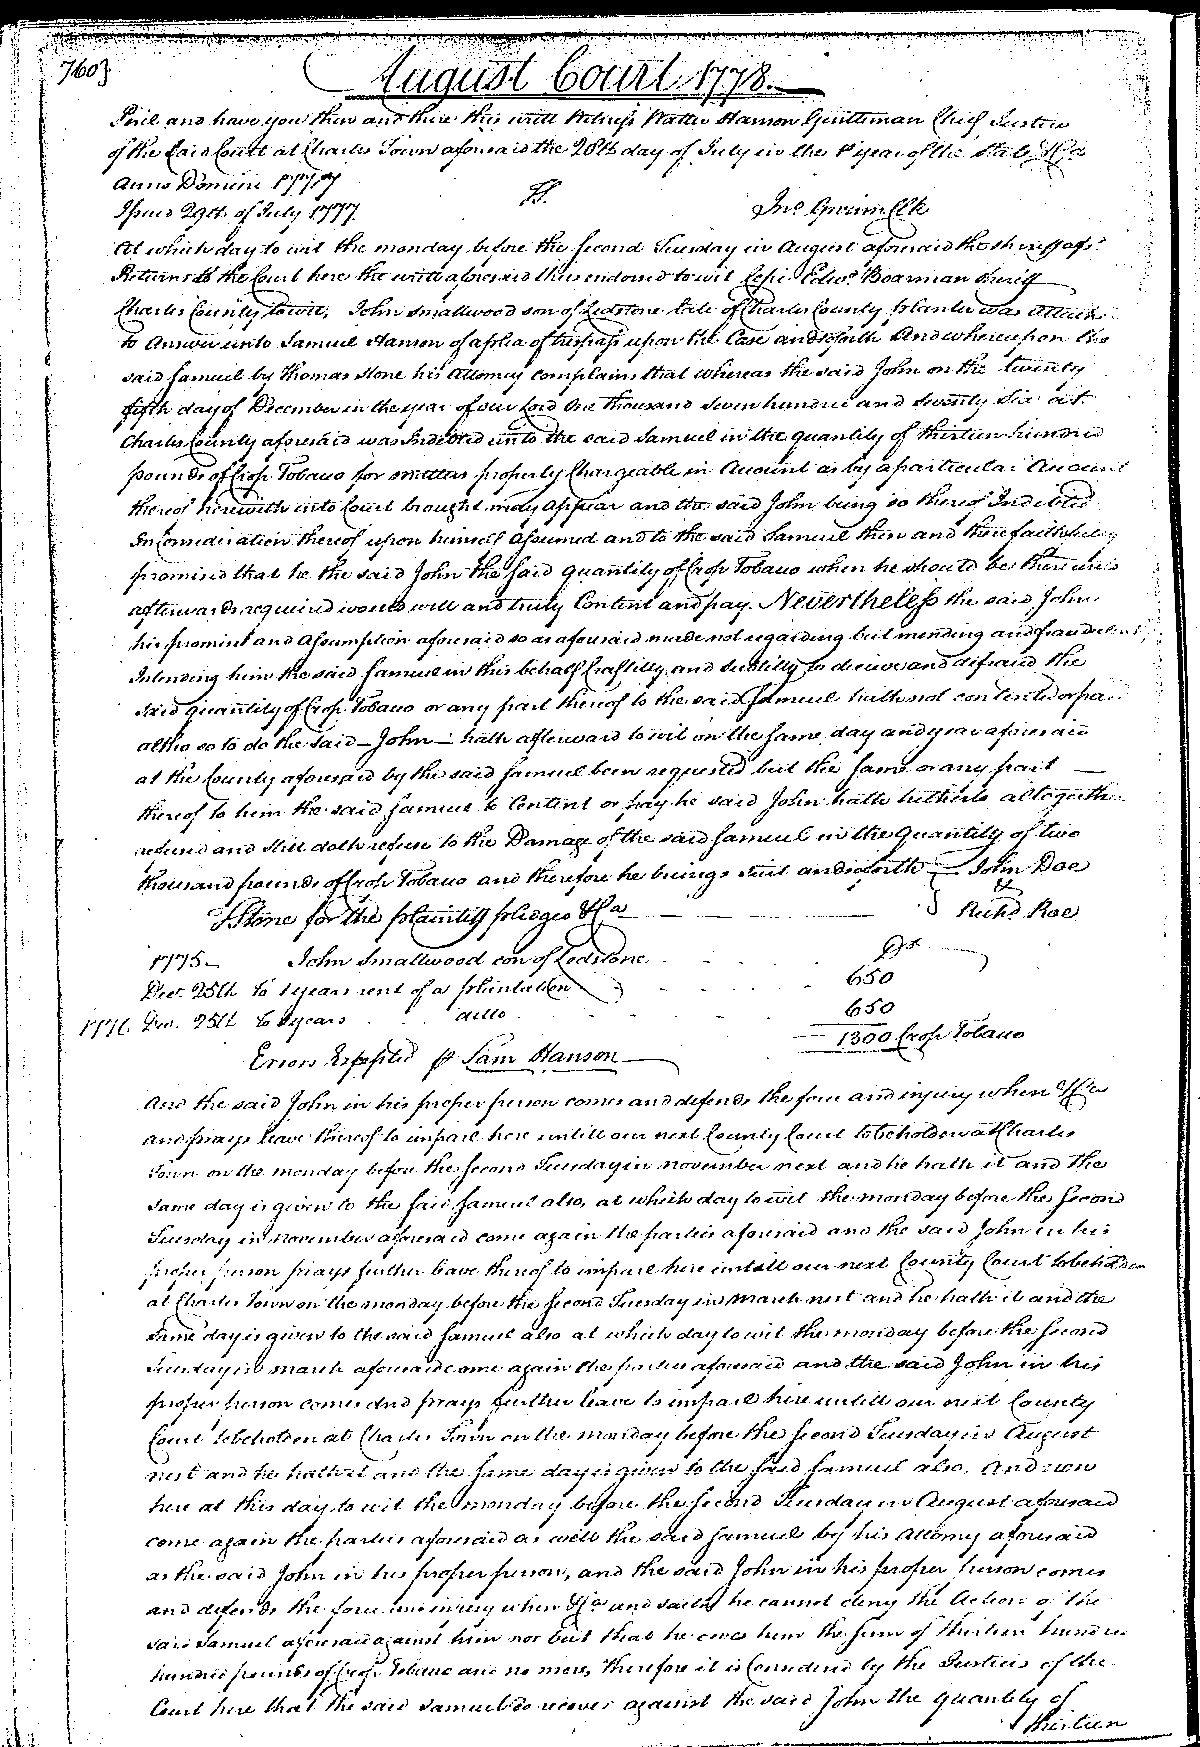 760}
August Court 1778.
Peril and have you then and there this writt Witness Walter Hanson Gentleman Chief Justice
of the said Court at Charles Town aforesaid the 28th day of July in the 1st year of the State &Ca
Anno Domini 1777
Issued 29th of July 1777. Jno. Gwinn Clk
At which day to wit the monday before the second Tuesday in August aforesaid the sheriff afsd.
Returns to the Court here the writt aforesaid thus endorsed to wit Cepi Edwd. Boarman Sheriff
Charles County towit, John Smallwood son of Ledstone late of Charles County planter was attach'd
to answer unto Samuel Hanson of a plea of trespass upon the Case andsoforth And whereupon the
said Samuel by Thomas Stone his attorney complains that whereas the said John on the twenty
fifth day of December in the year of our Lord One thousand Seven hundred and Seventy Six at
Charles County aforesaid was Indebted unto the said Samuel in the quantity of thirteen hundred
pounds of Crop Tobacco for matters properly Chargeable in Account as by a particular Account
thereof herewith into Court brought may appear and the said John being so thereof Indebted
In Consideration thereof upon himself assumed and to the said Samuel then and there faithfully
promised that he the said John the said quantity of Crop Tobacco when he should be thereunto
afterwards required would well and truly Content and pay. Nevertheless the said John
his promise and assumption aforesaid so as aforesaid made not regarding but minding and fraudulently
Intending him the said Samuel in this behalf Craftilly and subtilly to deceive and defraud the
said quantity of Crop Tobacco or any part thereof to the said Samuel hath not contented or paid
altho so to do the said — John — hath afterward to wit on the same day and year aforesaid
at the County aforesaid by the said Samuel been requested but the same or any part —
thereof to him the said Samuel to Content or pay he said John hath hitherto altogether
refused and still doth refuse to the Damage of the said Samuel in the Quantity of two
thousand pounds of Crop Tobacco and therefore he brings suit andsoforth — John Doe
T Stone for the plaintiff pledges &Ca } & Richd. Roe
1775 — John Smallwood son of Ledstone Dr.
Decr. 25th To 1 years rent of a plantation 650
1776 Decr. 25th To 1 years ditto 650
1300 Crop Tobacco
Errors Excepted p Sam Hanson
And the said John in his proper person comes and defends the force and injury when &Ca
and prays leave thereof to imparl here untill our next County Court tobeholden at Charles
Town on the monday before the second Tuesday in november next and he hath it and the
same day is given to the said Samuel also, at which day to wit the monday before the Second
Tuesday in november aforesaid come again the parties aforesaid and the said John in his
proper person prays further leave thereof to imparl here untill our next County Court tobeholden
at Charles Town on the monday before the second Tuesday in March next and he hath it and the
same day is given to the said Samuel also at which day to wit the monday before the Second
Tuesday in march aforesaid come again the parties aforesaid and the said John in his
proper person comes and prays further leave to imparl here untill our next County
Court tobeholden at Charles Town on the monday before the Second Tuesday in August
next and he hath it and the same day is given to the said Samuel also. And now
here at this day to wit the monday before the Second Tuesday in August aforesaid
come again the parties aforesaid as well the said Samuel by his Attorny aforesaid
as the said John in his proper person, and the said John in his proper person comes
and defends the force and injury when &Ca and saith he cannot deny the Action of the
said Samuel aforesaid against him nor but that he owes him the sum of thirteen hundred
hundred pounds of Crop Tobacco and no more, therefore it is Considered by the Justices of the
Court here that the said Samuel do recover against the said John the quantity of
thirteen